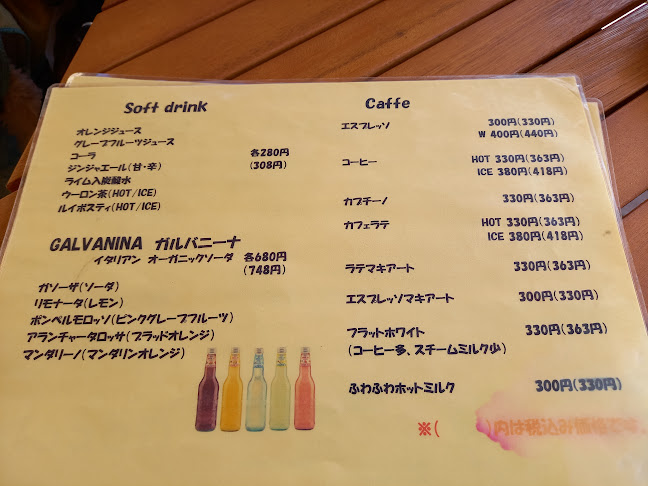 Soft drink
オレンジジュース
グレープフルーツジュース
コーラ 各280円
ジンジャエール(甘・辛) (308円)
ライム入炭酸水
ウーロン茶(HOT/ICE)
ルイボスティ(HOT/ICE)
GALVANINA ガルバニーナ
イタリアン オーガニックソーダ 各680円
(748円)
ガソーザ(ソーダ)
リモナータ(レモン)
ポンペルモロッソ(ピンクグレープフルーツ)
アランチャータロッサ(ブラッドオレンジ)
マンダリーノ(マンダリンオレンジ)
Caffe
エスプレッソ 300円(330円)
W 400円(440円)
コーヒー HOT 330円(363円)
ICE 380円(418円)
カプチーノ 330円(363円)
カフェラテ HOT 330円(363円)
ICE 380円(418円)
ラテマキアート 330円(363円)
エスプレッソマキアート 300円(330円)
フラットホワイト 330円(363円)
(コーヒー多、スチームミルク少)
ふわふわホットミルク 300円(330円)
※( )内は税込み価格です